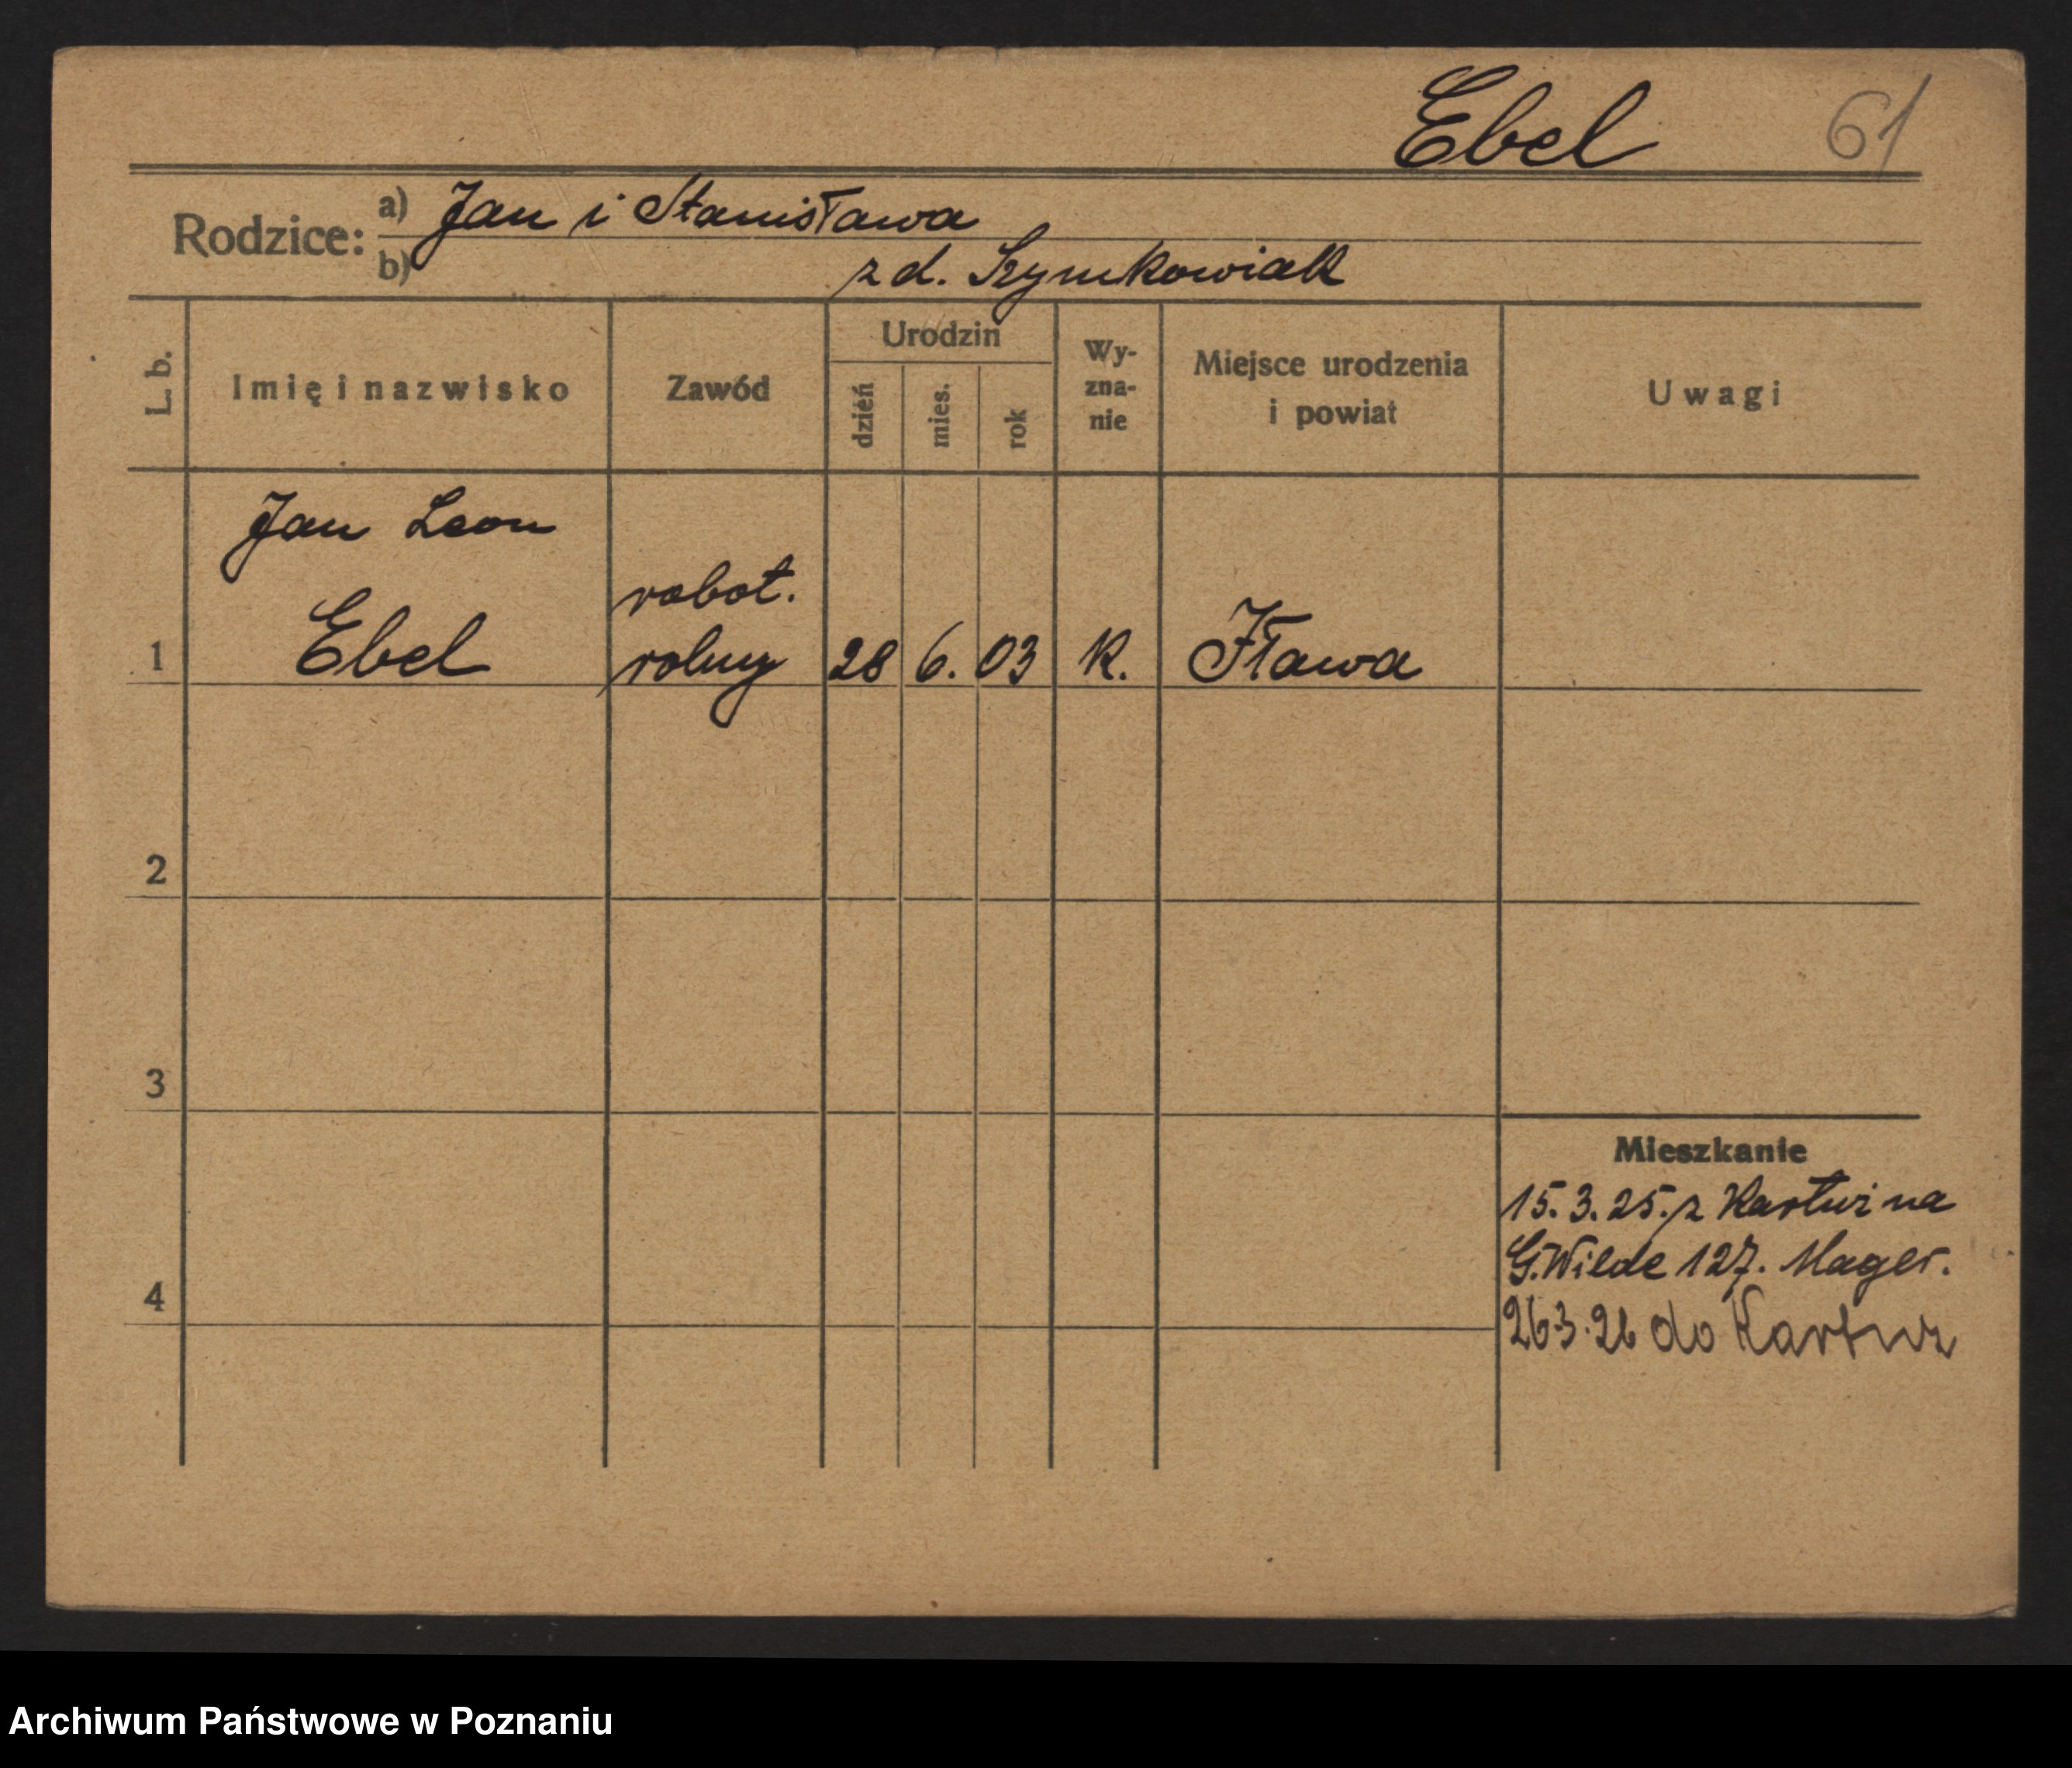 Ebel 61
Rodzice: a) Jan i Stanisława
b) z d. Szymkowiak
L. b.
Imię i nazwisko
Zawód
Urodzin
dzień
mies.
rok
Wy-
zna-
nie
Miejsce urodzenia
i powiat
Uwagi
Jan Leon
robot.
1 Ebel rolny 28 6. 03 k. Iława
2
3
4
Mieszkanie
15.3.25. z Kartuz na
G. Wilde 127. Mager.
26.3.26 do Kartuz
Archiwum Państwowe w Poznaniu